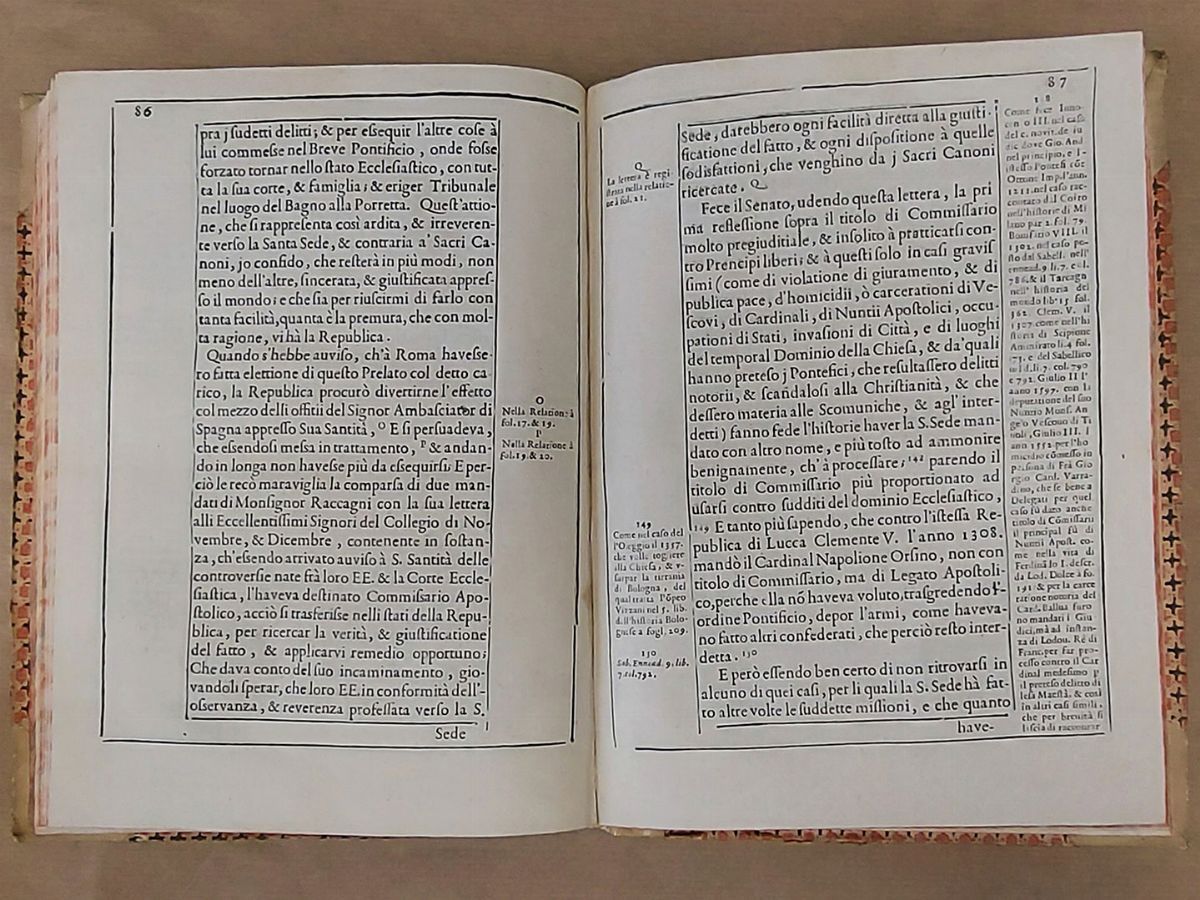 86
pra j sudetti delitti; & per essequir l'altre cose à
lui commesse nel Breve Pontificio, onde fosse
forzato tornar nello stato Ecclesiastico, con tut-
ta la sua corte, & famiglia; & eriger Tribunale
nel luogo del Bagno alla Porretta. Quest'attio-
ne, che si rappresenta così ardita, & irreveren-
te verso la Santa Sede, & contraria a' Sacri Ca-
noni, jo confido, che resterà in più modi, non
meno dell'altre, sincerata, & giustificata appres-
so il mondo; e che sia per riuscirmi di farlo con
tanta facilità, quanta è la premura, che con mol-
ta ragione, vi hà la Republica.
Quando s'hebbe auviso, ch'à Roma havesse-
ro fatta elettione di questo Prelato col detto ca-
rico, la Republica procurò divertirne l'effetto
col mezzo delli offitii del Signor Ambasciator di
Spagna appresso Sua Santità, O E si persuadeva,
che essendosi messa in trattamento, P & andan-
do in longa non havesse più da essequirsi; E per-
ciò le recò maraviglia la comparsa di due man-
dati di Monsignor Raccagni con la sua lettera
alli Eccellentissimi Signori del Collegio di No-
vembre, & Dicembre, contenente in sostan-
za, ch'essendo arrivato auviso à S. Santità delle
controversie nate frà loro EE. & la Corte Eccle-
siastica, l'haveva destinato Commissario Apo-
stolico, acciò si trasferisse nelli stati della Repu-
blica, per ricercar la verità, & giustificatione
del fatto, & applicarvi remedio opportuno;
Che dava conto del suo incaminamento, gio-
vandoli sperar, che loro EE. in conformità dell'-
osservanza, & reverenza professata verso la S.
Sede
O
Nella Relatione à
fol. 17. & 19.
P
Nella Relatione à
fol. 19. & 20.
87
Q
La lettera è regi-
strata nella relatio-
ne à fol. 21.
149
Come nel caso del
l'Oleggio il 1357.
che volle togliere
alla Chiesa, & v-
surpar la tirrania
di Bologna, del
qual tratta Pōpeo
Vizzani nel 5. lib.
dell'historia Bolo-
gnese a fogl. 209.
150
Sab. Ennead. 9. lib.
7. fol. 792.
Sede, darebbero ogni facilità diretta alla giusti-
ficatione del fatto, & ogni dispositione à quelle
sodisfattioni, che venghino da j Sacri Canoni
ricercate. Q
Fece il Senato, udendo questa lettera, la pri
ma reflessione sopra il titolo di Commissario
molto pregiuditiale, & insolito à pratticarsi con-
tro Prencipi liberi; & à questi solo in casi gravis
simi (come di violatione di giuramento, & di
publica pace, d'homicidii, ò carcerationi di Ve-
scovi, di Cardinali, di Nuntii Apostolici, occu
pationi di Stati, invasioni di Città, e di luoghi
del temporal Dominio della Chiesa, & da'quali
hanno preteso j Pontefici, che resultassero delitti
notorii, & scandalosi alla Christianità, & che
dessero materia alle Scomuniche, & agl'inter-
detti) fanno fede l'historie haver la S. Sede man-
dato con altro nome, e più tosto ad ammonire
benignamente, ch'à processare; 148 parendo il
titolo di Commissario più proportionato ad
usarsi contro sudditi del dominio Ecclesiastico,
149 E tanto più sapendo, che contro l'istessa Re-
publica di Lucca Clemente V. l'anno 1308.
mandò il Cardinal Napolione Orsino, non con
titolo di Commissario, ma di Legato Apostoli-
co, perche ella nō haveva voluto, trasgredendo l'-
ordine Pontificio, depor l'armi, come haveva-
no fatto altri confederati, che perciò resto inter-
detta. 150
E però essendo ben certo di non ritrovarsi in
alcuno di quei casi, per li quali la S. Sede hà fat-
to altre volte le suddette missioni, e che quanto
have-
Come fece Inno-
cen o III. nel caso
del c. novit. de iu
dic dove Gio. And.
nel principio, e l-
istesso Pontefi cōt
Ottone Imp. l'ann.
1211. nel caso rac-
contato dal Corio
nell'historie di Mi
lano par 2. fol. 79.
Bonifatio VIII. il
1302. nel caso po-
sto dal Sabell. nell'
ennead. 9. li. 7. col.
786. & il Tarcagn
nell' historia del
mondo lib. 15 fol.
362 Clem. V. il
1307. come nell'hi
storia di Scipione
Ammirato li. 4 fol.
73. e del Sabellico
d. li. 7. col. 790
e 792. Giulio II l'
anno 1507. con la
deputatione del suo
Nuntio Mons. An
gelo Vescouo di Ti
uoli, Giulio III. l
anno 1551. per l'ho
micidio cōmesso in
persona di Frà Gio
rgio Card. Varra-
dino, che se bene a
Delegati per quel
caso fù dato anche
titolo di Cōmissarii
il principal fù di
Nuntii Apost. co
me nella vita di
Ferdināo I. descr.
da Lod. Dolce à fo.
191. & per la carce
ratione notoria del
Card. Ballua furo
no mandati i Giu
dici, mà ad instan-
za di Lodou. Rè di
Franc. per far pro-
cesso contro il Car
dinal medesimo p
il preteso delitto di
lesa Maestà. & così
in altri casi simili.
che per breuità si
lascia di raccontar